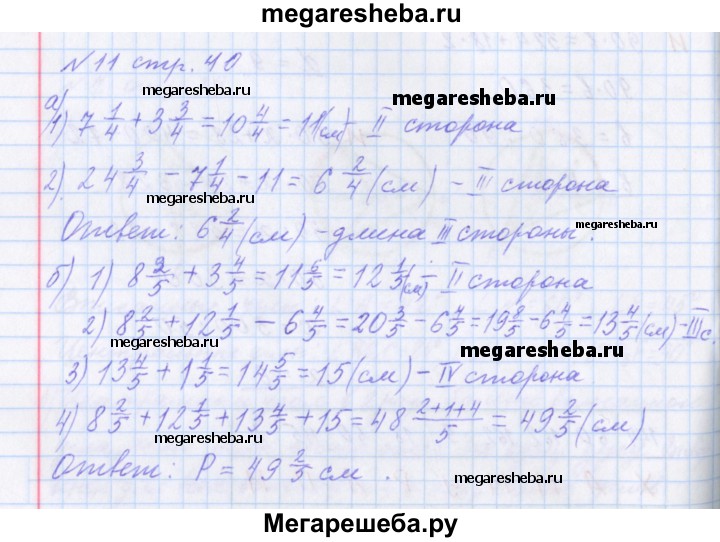 megaresheba.ru
№11 стр. 40
megaresheba.ru
megaresheba.ru
а)
1) 7 1/4 + 3 3/4 = 10 4/4 = 11(см) - II сторона
2) 24 3/4 - 7 1/4 - 11 = 6 2/4 (см) - III сторона
megaresheba.ru
Ответ: 6 2/4 (см) - длина III стороны.
megaresheba.ru
б) 1) 8 2/5 + 3 4/5 = 11 6/5 = 12 1/5 (см) - II сторона
2) 8 2/5 + 12 1/5 - 6 4/5 = 20 3/5 - 6 4/5 = 19 8/5 - 6 4/5 = 13 4/5 (см) - III с.
megaresheba.ru
megaresheba.ru
3) 13 4/5 + 1 1/5 = 14 5/5 = 15 (см) - IV сторона
4) 8 2/5 + 12 1/5 + 13 4/5 + 15 = 48 (2+1+4)/5 = 49 2/5 (см)
megaresheba.ru
Ответ: P = 49 2/5 см.
megaresheba.ru
Мегарешеба.ру